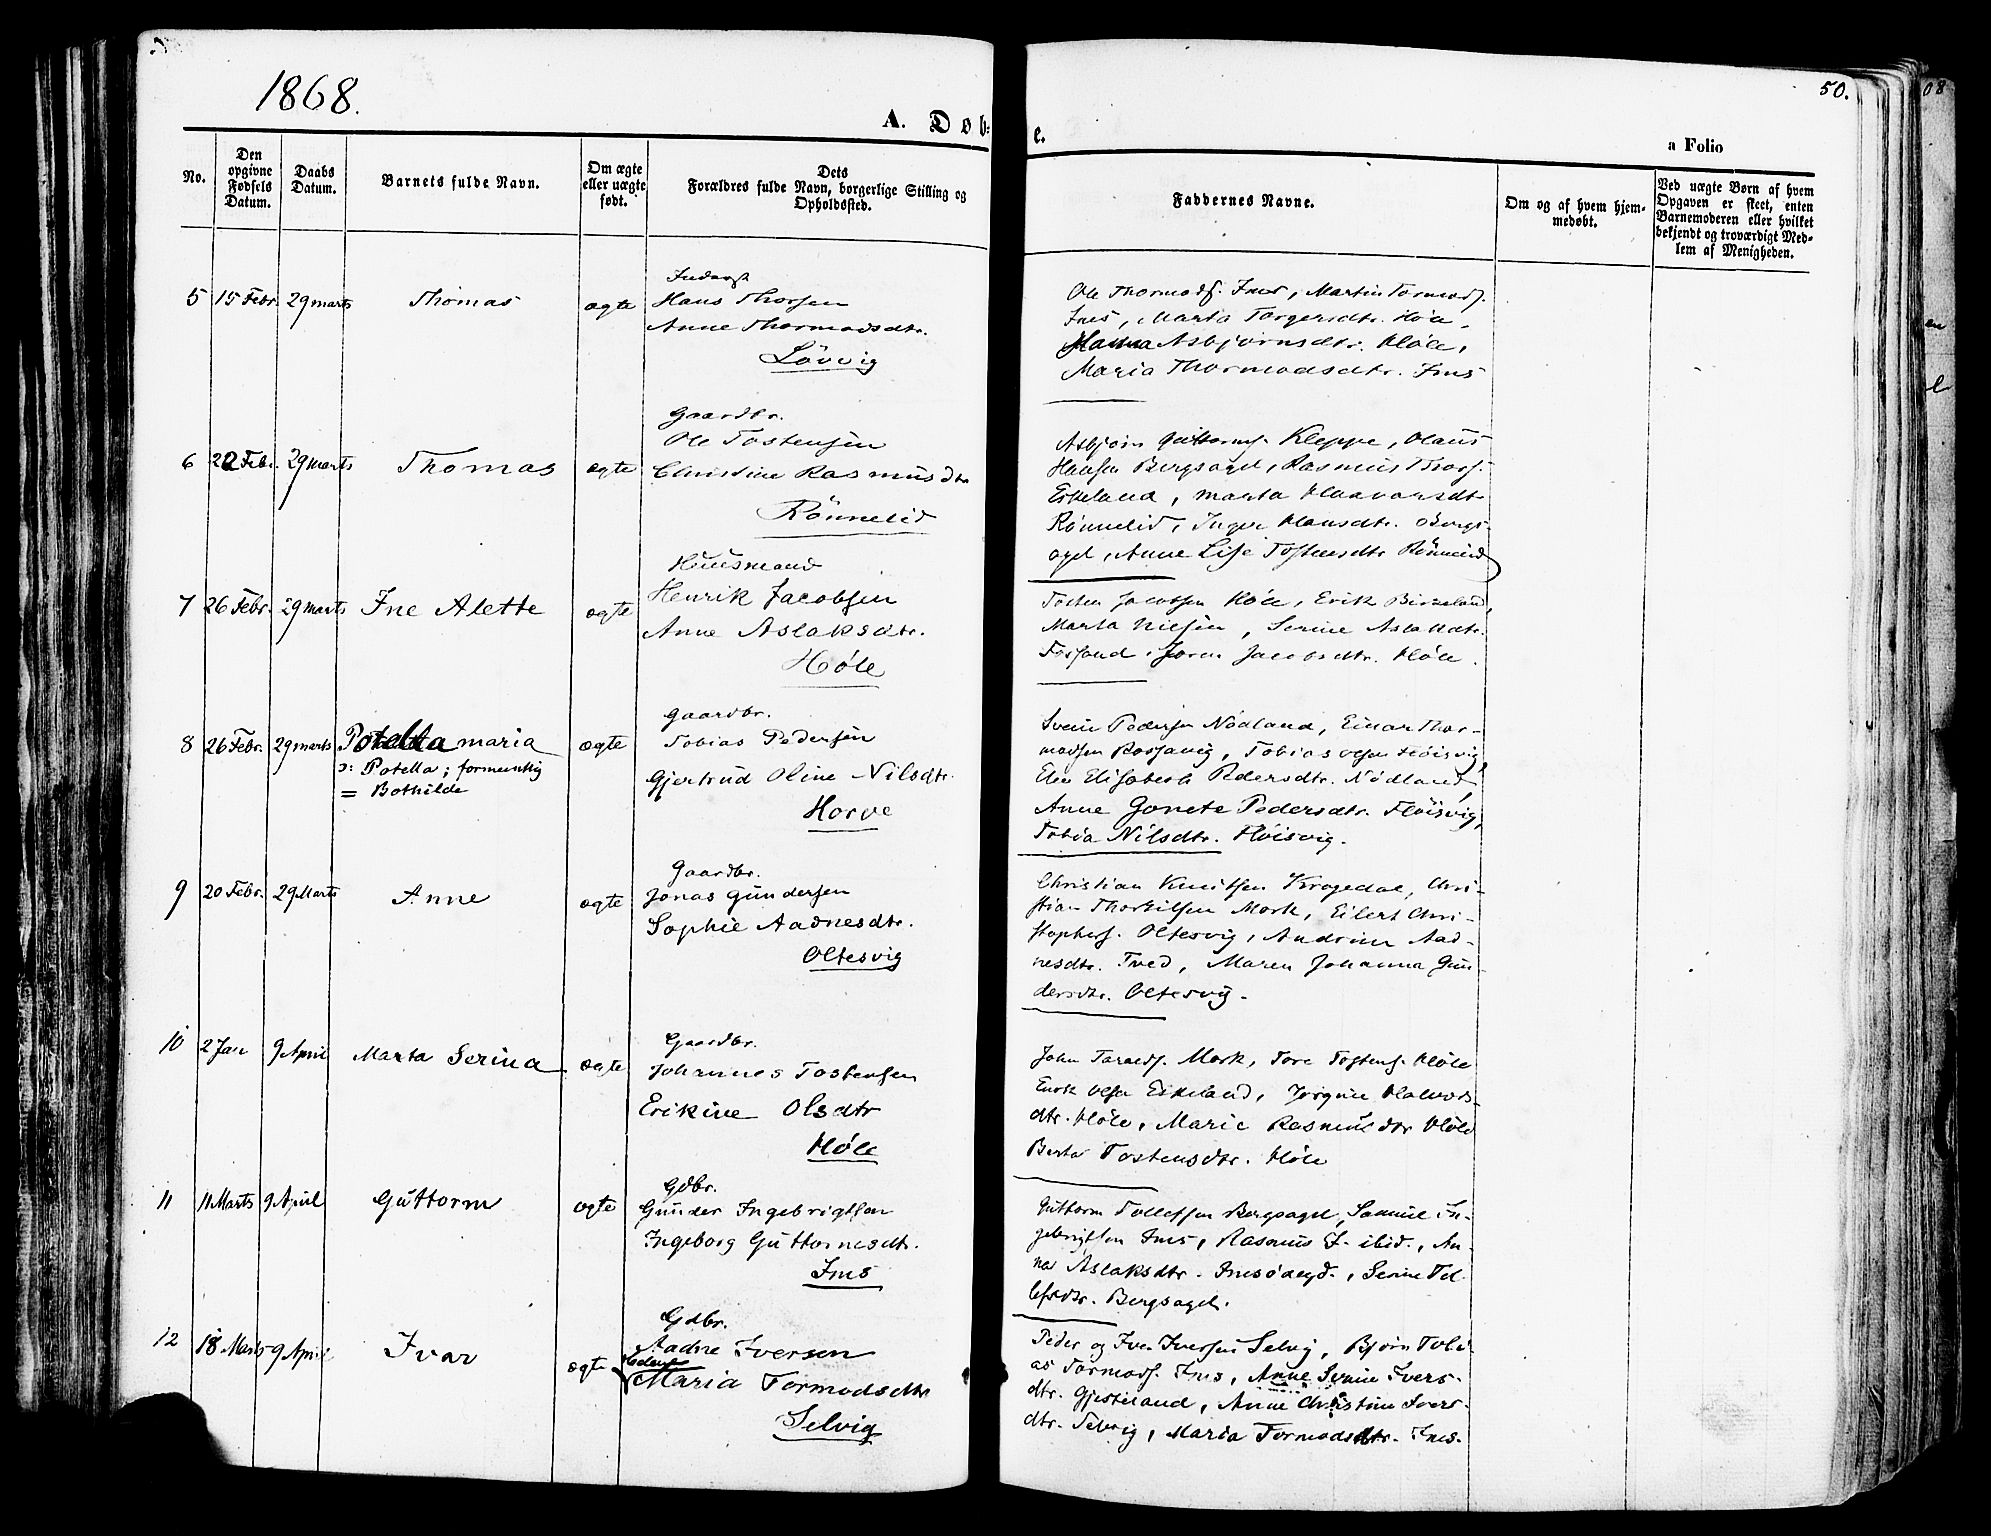 1868.
50.
A. Døb-
e.
a Folio
No.
Den opgivne Fødsels Datum.
Daabs Datum.
Barnets fulde Navn.
Om ægte eller uægte født.
Dets Forældres fulde Navn, borgerlige Stilling og Opholdssted.
Faddernes Navne.
Om og af hvem hjem-
medøbt.
Ved uægte Børn af hvem
Opgaven er skeet, enten
Barnemoderen eller hvilket
bekjendt og troværdigt Med-
lem af Menigheden.
5 15 Febr 29 marts Thomas ægte
Hans Thorsen
Anne Thormodsdtr.
Lövvig
Ole Thormods. Ims, Martin Tormods.
Ims, Marta Torgersdtr. Høle,
Asbjörnsdtr. Høle,
Maria Thormodsdtr. Ims
6 22 Febr. 29 marts Thomas ægte
Gaardbr.
Ole Tostensen
Christine Rasmusdtr
Rönnelid
Asbjörn Guttorms. Kleppe, Olaus
Hansen Bergsagel, Rasmus Thors.
Eskeland, Marta Haavarsdtr
Rönnelid, Inger Hansdtr. Bergs-
agel, Anne Lise Tostensdtr Rönnelid
7 26 Febr. 29 marts Ine Alette ægte
Huusmand
Henrik Jacobsen
Anne Aslaksdtr.
Høle
Tosten Jacobsen Høle, Erik Birkeland,
Marta Nilsen, Serine Aslaksdtr.
Fossand, Jacobsdtr. Høle.
8 26 Febr. 29 marts Potella maria ægte
ɔ: Potella; formentlig
= Bothilde
Gaardbr.
Tobias Pedersen
Gjertrud Oline Nilsdtr.
Horve
Svein Pedersen Nödland, Einar Thor-
modsen Rossavig, Tobias Olsen Höisvig
Elen Elisabeth Pedersdtr. Nödland,
Anne Gonete Pedersdtr. Flöisvig,
Tobia Nilsdtr. Flöisvig.
9 20 Febr. 29 Marts Anne ægte
Gaardbr.
Jonas Gundersen
Sophie Aadnesdtr.
Oltesvig
Christian Knutsen Kragedal, Chri-
stian Thorkilsen Mork, Eilert Chri-
stophers. Oltesvig, Andrine Aad-
nesdtr. Tved, Maren Johanna Gun-
dersdtr. Oltesvig.
10 2 Jan 9 April Marta Serina ægte
Gaardbr.
Johannes Tostensen
Erikine Olsdtr
Høle
John Mork, Tore Tostens. Høle
Enok Olsen Eskeland, Jörgine Halvors-
dtr. Høle, Marie Rasmusdtr Høle
Berta Tostensdtr. Høle
11 11 Marts 9 April Guttorm ægte
Gdbr.
Gunder Ingebrigtsen
Ingeborg Guttormsdtr.
Ims
Guttorm Tollefsen Bergsagel, Samuel In-
gebrigtsen Ims, Rasmus ibid., An-
na Aslaksdtr. Imsödegd., Serine Tol-
lefsdtr. Bergsagel.
12 18 Marts 9 April Ivar ægte
Gdbr.
Aadne Iversen
Maria Tormodsdtr
Selvig
Peder og Iver Iversen Selvig, Björn Tobi
as Tormods. Ims, Anne Serine Ivers-
dtr. Gjesteland, Anne Christine Ivers-
dtr. Selvig, Maria Tormodsdtr. Ims.